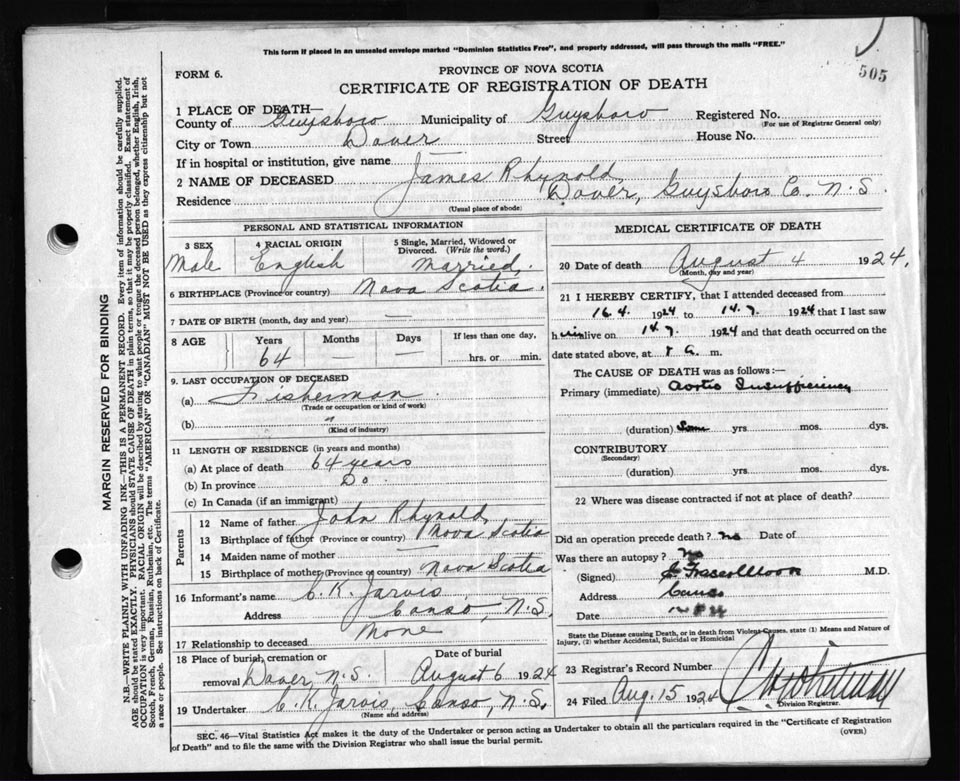 This form if placed in an unsealed envelope marked "Dominion Statistics Free", and properly addressed, will pass through the mails "FREE."
505
FORM 6.
PROVINCE OF NOVA SCOTIA
CERTIFICATE OF REGISTRATION OF DEATH
1 PLACE OF DEATH—
County of Guysboro Municipality of Guysboro Registered No.
(For use of Registrar General only)
City or Town Dover Street House No.
If in hospital or institution, give name —
2 NAME OF DECEASED James Rhynold
Residence Dover, Guysboro Co. N.S.
(Usual place of abode)
PERSONAL AND STATISTICAL INFORMATION
3 SEX 4 RACIAL ORIGIN 5 Single, Married, Widowed or Divorced. (Write the word.)
Male English Married.
6 BIRTHPLACE (Province or country) Nova Scotia.
7 DATE OF BIRTH (month, day and year) —
8 AGE Years Months Days If less than one day,
64 — — hrs. or min.
9. LAST OCCUPATION OF DECEASED
(a) Fisherman.
(Trade or occupation or kind of work)
(b) "
(Kind of industry)
11 LENGTH OF RESIDENCE (in years and months)
(a) At place of death 64 years
(b) In province Do.
(c) In Canada (if an immigrant)
Parents
12 Name of father John Rhynold
13 Birthplace of father (Province or country) Nova Scotia
14 Maiden name of mother —
15 Birthplace of mother (Province or country) Nova Scotia
16 Informant's name C. K. Jarvis.
Address Canso, N.S.
17 Relationship to deceased None
18 Place of burial, cremation or removal Dover N.S. Date of burial August 6 1924
19 Undertaker C. K. Jarvis, Canso, N.S.
(Name and address)
MEDICAL CERTIFICATE OF DEATH
20 Date of death August 4 1924.
(Month, day and year)
21 I HEREBY CERTIFY, that I attended deceased from
16.4. 1924 to 14.7. 1924 that I last saw
him alive on 14.7. 1924 and that death occurred on the
date stated above, at a. m.
The CAUSE OF DEATH was as follows:—
Primary (immediate) Aortic Insufficiency
(duration) Some yrs. mos. dys.
CONTRIBUTORY
(Secondary)
(duration) yrs. mos. dys.
22 Where was disease contracted if not at place of death?
Did an operation precede death? No Date of
Was there an autopsy? No
(Signed) M.D.
Address Canso
Date
State the Disease causing Death, or in death from Violent Causes, state (1) Means and Nature of
Injury, (2) whether Accidental, Suicidal or Homicidal
23 Registrar's Record Number
24 Filed Aug. 15 1924
Division Registrar.
SEC. 46—Vital Statistics Act makes it the duty of the Undertaker or person acting as Undertaker to obtain all the particulars required in the "Certificate of Registration
of Death" and to file the same with the Division Registrar who shall issue the burial permit.
(OVER)
MARGIN RESERVED FOR BINDING
N.B.—WRITE PLAINLY WITH UNFADING INK—THIS IS A PERMANENT RECORD. Every item of information should be carefully supplied.
AGE should be stated EXACTLY. PHYSICIANS should STATE CAUSE OF DEATH in plain terms, so that it may be properly classified. Exact statement of
OCCUPATION is very important. RACIAL ORIGIN will be described by stating to what people or tongue the deceased person belonged, whether English, Irish,
Scotch, French, German, Russian, Ruthenian, etc. The terms "AMERICAN" OR "CANADIAN" MUST NOT BE USED as they express citizenship but not
a race or people. See instructions on back of Certificate.